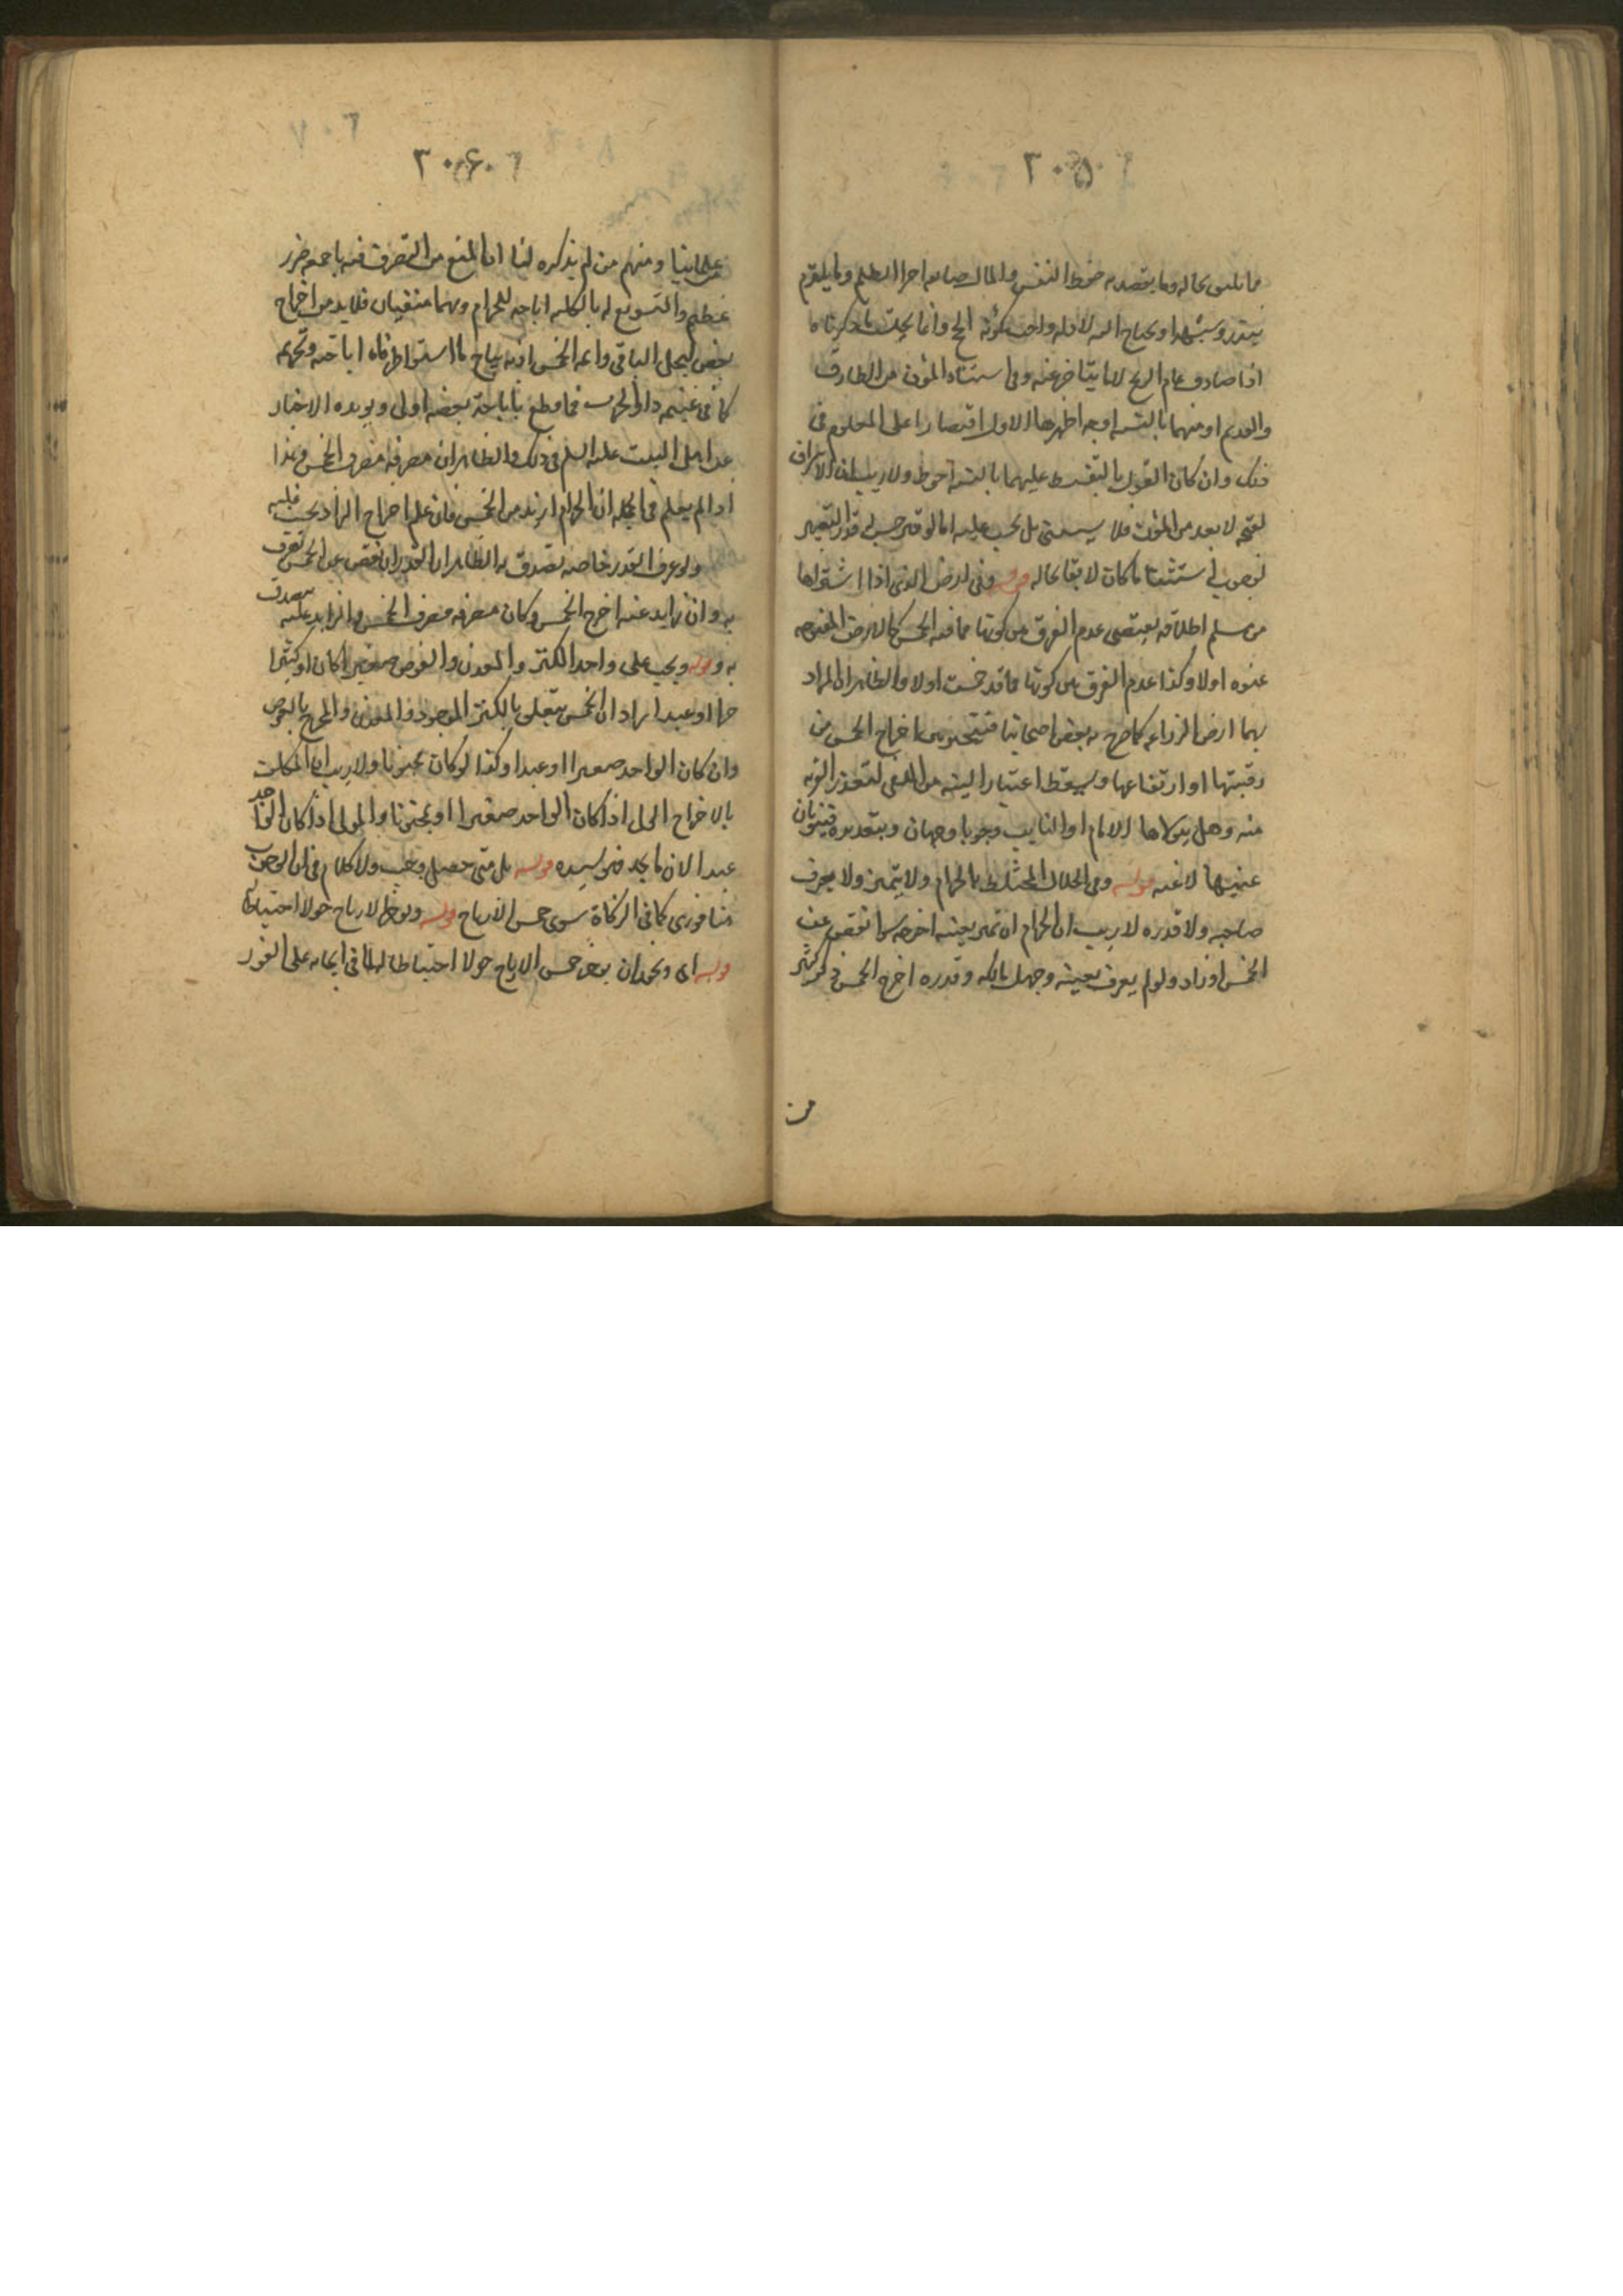 ٣٠٥
مما يليق بحاله وما يقصد به حفظ النفس والمال
بنذر وشبهه او يحتاج اليه لافله واجب كمؤنة الحج وانما يجب ما ذكرناه
اذا صادف عام الربح لا ما يتاخر عنه وفي استثناء المؤن من الطارف
والقديم او منهما بالنسبه اوجه اظهرها الاول اقتصارا على المعلوم في
ذلك وان كان القول بالتقسيط عليهما بالنسبه احوط ولا ريب ان الاسراف
لقبحه لا يعد من المؤن فلا يستثنى بل يجب عليه اما لو قتر حسب له قدر التقتير
لوجوب استثناء ما كان لايقا بحاله قوله وفي ارض الذمي اذا اشتراها
من مسلم اطلاقه يقتضي عدم الفرق بين كونها مما فيه الخمس كالارض المفتوحه
عنوه اولا وكذا عدم الفرق بين كونها مما قد خمست اولا والظاهر ان المراد
بها ارض الزراعه كما صرح به بعض اصحابنا فيتخير بين اخراج الخمس من
رقبتها او ارتفاعها ويسقط اعتبار النيه من الذمي لتعذر القربه
منه وهل يتولاها الامام او النايب وجوبا وجهان وبتقديره فينويان
عنهما لا عنه قوله وفي الحلال المختلط بالحرام ولا يتميز ولا يعرف
صاحبه ولا قدره لا ريب ان الحرام ان تميز بعينه اخرجه سوا نقص عن
الخمس او زاد ولو لم يعرف بعينه وجهل مالكه وقدره اخرج الخمس ذكره كثير
من
٣٠٦
علمائنا ومنهم من لم يذكره لنا ان المنع من التصرف فيه باجمعه ضرر
عظيم والتسويغ له بالكليه اباحه للحرام وهما منفيان فلا بد من اخراج
بعض ليحل الباقي وانه الخمس اذ به يباح ما استوا طرفاه اباحته وتحريمه
كما في غنيمه دار الحرب فما قطع باباحة بعضه اولى ويويده الاخبار
عن اهل البيت عليه السلم في ذلك والظاهر ان مصرفه مصرف الخمس وهذا
اذا لم يعلم في الجمله ان الحرام ازيد من الخمس فان علم اخراج الزايد يجب
ولو عرف القدر خاصه تصدق به الظاهر ان القدر ان نقص عن الخمس
به وان زايد عنه اخرج الخمس وكان مصرفه مصرف الخمس والزايد عليه يتصدق
به قوله ويجب على واجد الكنز والمعدن والغوص صغيرا كان او كبيرا
حرا او عبدا اراد ان الخمس يتعلق بالكنز الموجود والمعدن والمخرج بالغوص
وان كان الواجد صغيرا او عبدا وكذا لو كان مجنونا ولا ريب ان المكلف
بالاخراج الولي اذا كان الواجد صغيرا او مجنونا والمولى اذا كان الواجد
عبدا لان ما يجد فهو لسيده قوله بل متى حصل وجب ولا كلام في ان الوجوب
هنا فوري كما في الزكاة سوى خمس الارباح قوله ويوخر الارباح حولا احتياطا
قوله اي ويجوز ان يوخر خمس الارباح حولا احتياطا له لما في ايجابه على الفور